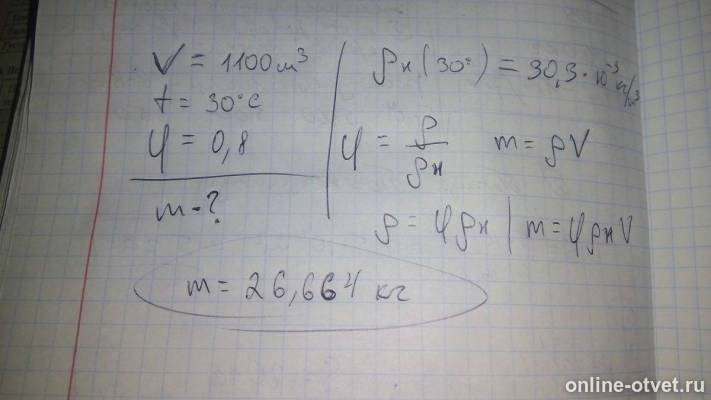 V = 1100 м³
t = 30°C
φ = 0,8
m - ?
ρн (30°) = 30,3 · 10⁻³ кг/м³
φ = ρ/ρн   m = ρV
ρ = φρн | m = φρнV
m = 26,664 кг
online-otvet.ru